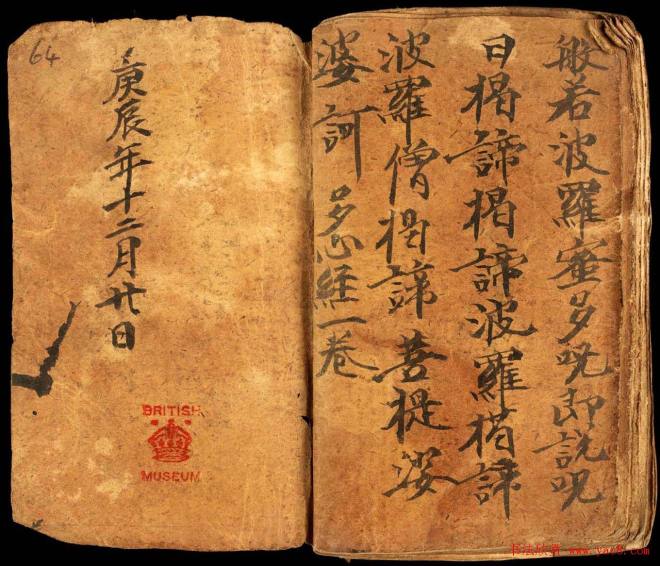 般若波羅蜜多呪即説呪
曰揭諦揭諦波羅揭諦
波羅僧揭諦菩提娑
婆訶 多心経一卷
庚辰年十二月廿日
64
BRITISH
MUSEUM
书法欣赏 www.yac8.com